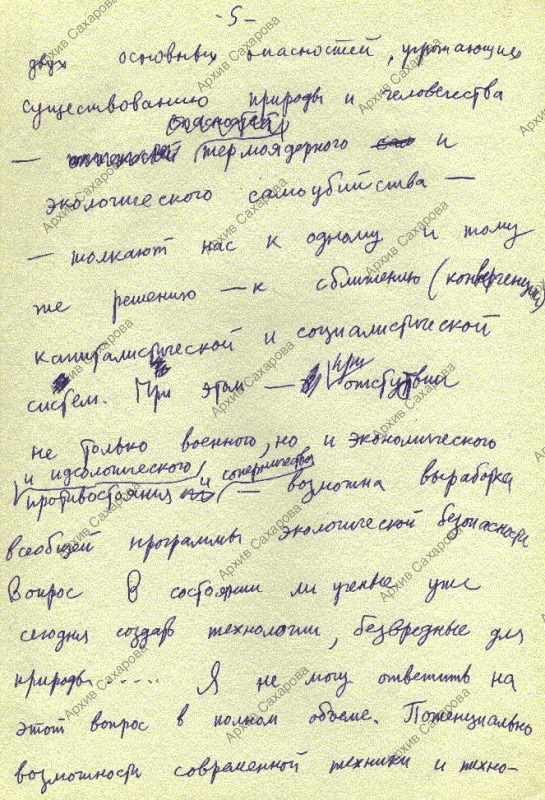 -5-
двух основных опасностей, угрожающих
существованию природы и человечества
опасностей
— термоядерного и
экологического самоубийства —
— толкают нас к одному и тому
же решению — к сближению (конвергенции)
капиталистической и социалистической
систем. При этом — при отсутствии
не только военного, но и экономического
и идеологического, и соперничества
противостояния — возможна выработка
всеобщей программы экологической безопасности
Вопрос В состоянии ли ученые уже
сегодня создать технологии, безвредные для
природы..... Я не могу ответить на
этот вопрос в полном объеме. Потенциально
возможности современной техники и техно-
Архив Сахарова